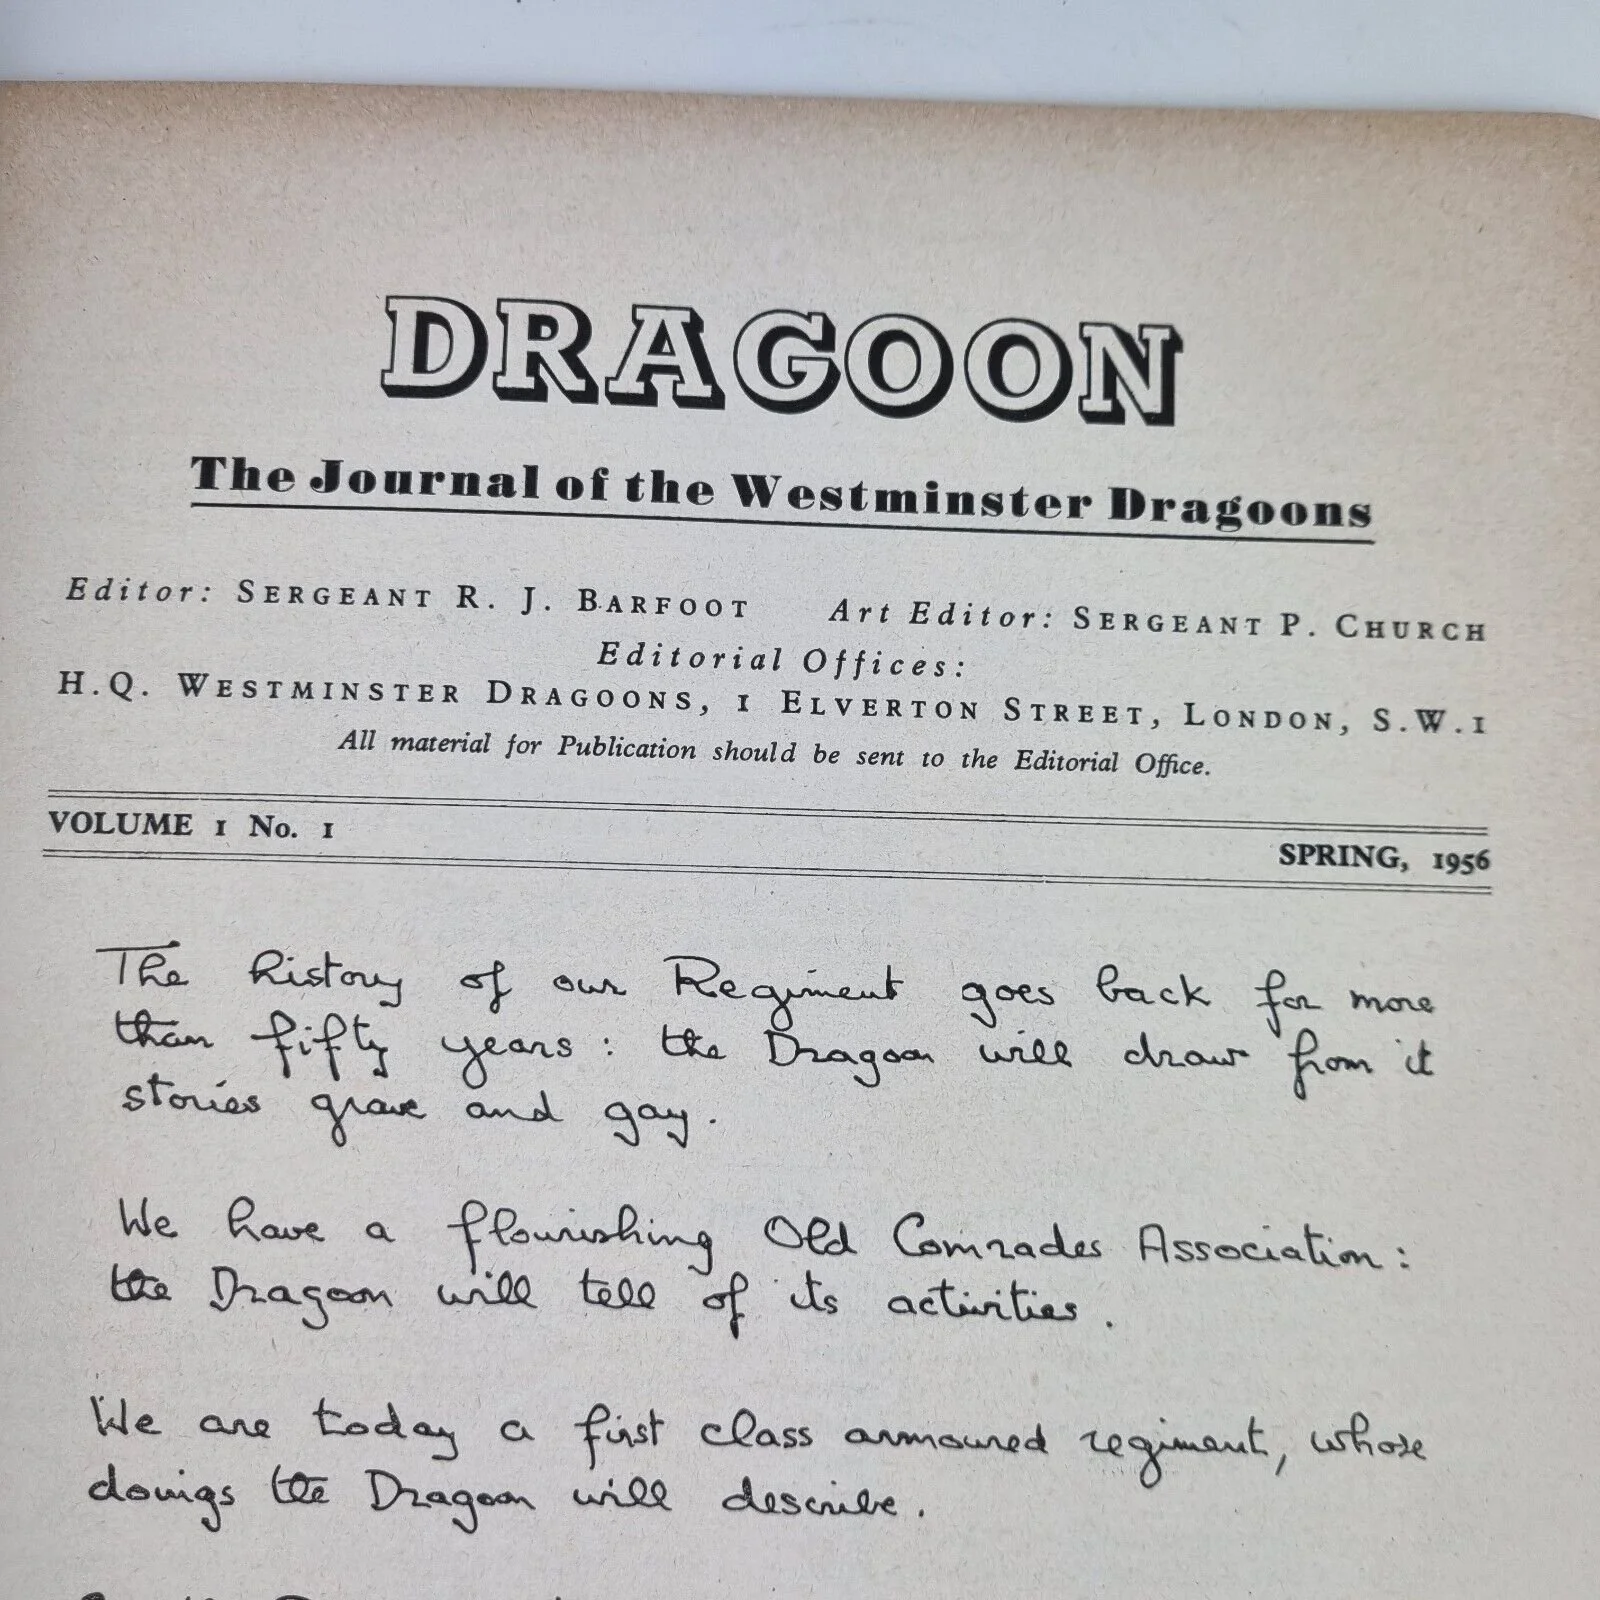 DRAGOON
The Journal of the Westminster Dragoons
Editor: SERGEANT R. J. BARFOOT Art Editor: SERGEANT P. CHURCH
Editorial Offices:
H.Q. WESTMINSTER DRAGOONS, 1 ELVERTON STREET, LONDON, S.W.1
All material for Publication should be sent to the Editorial Office.
VOLUME 1 No. 1
SPRING, 1956
The history of our Regiment goes back for more
than fifty years : the Dragoon will draw from it
stories grave and gay.
We have a flourishing Old Comrades Association :
the Dragoon will tell of its activities.
We are today a first class armoured regiment, whose
doings the Dragoon will describe.